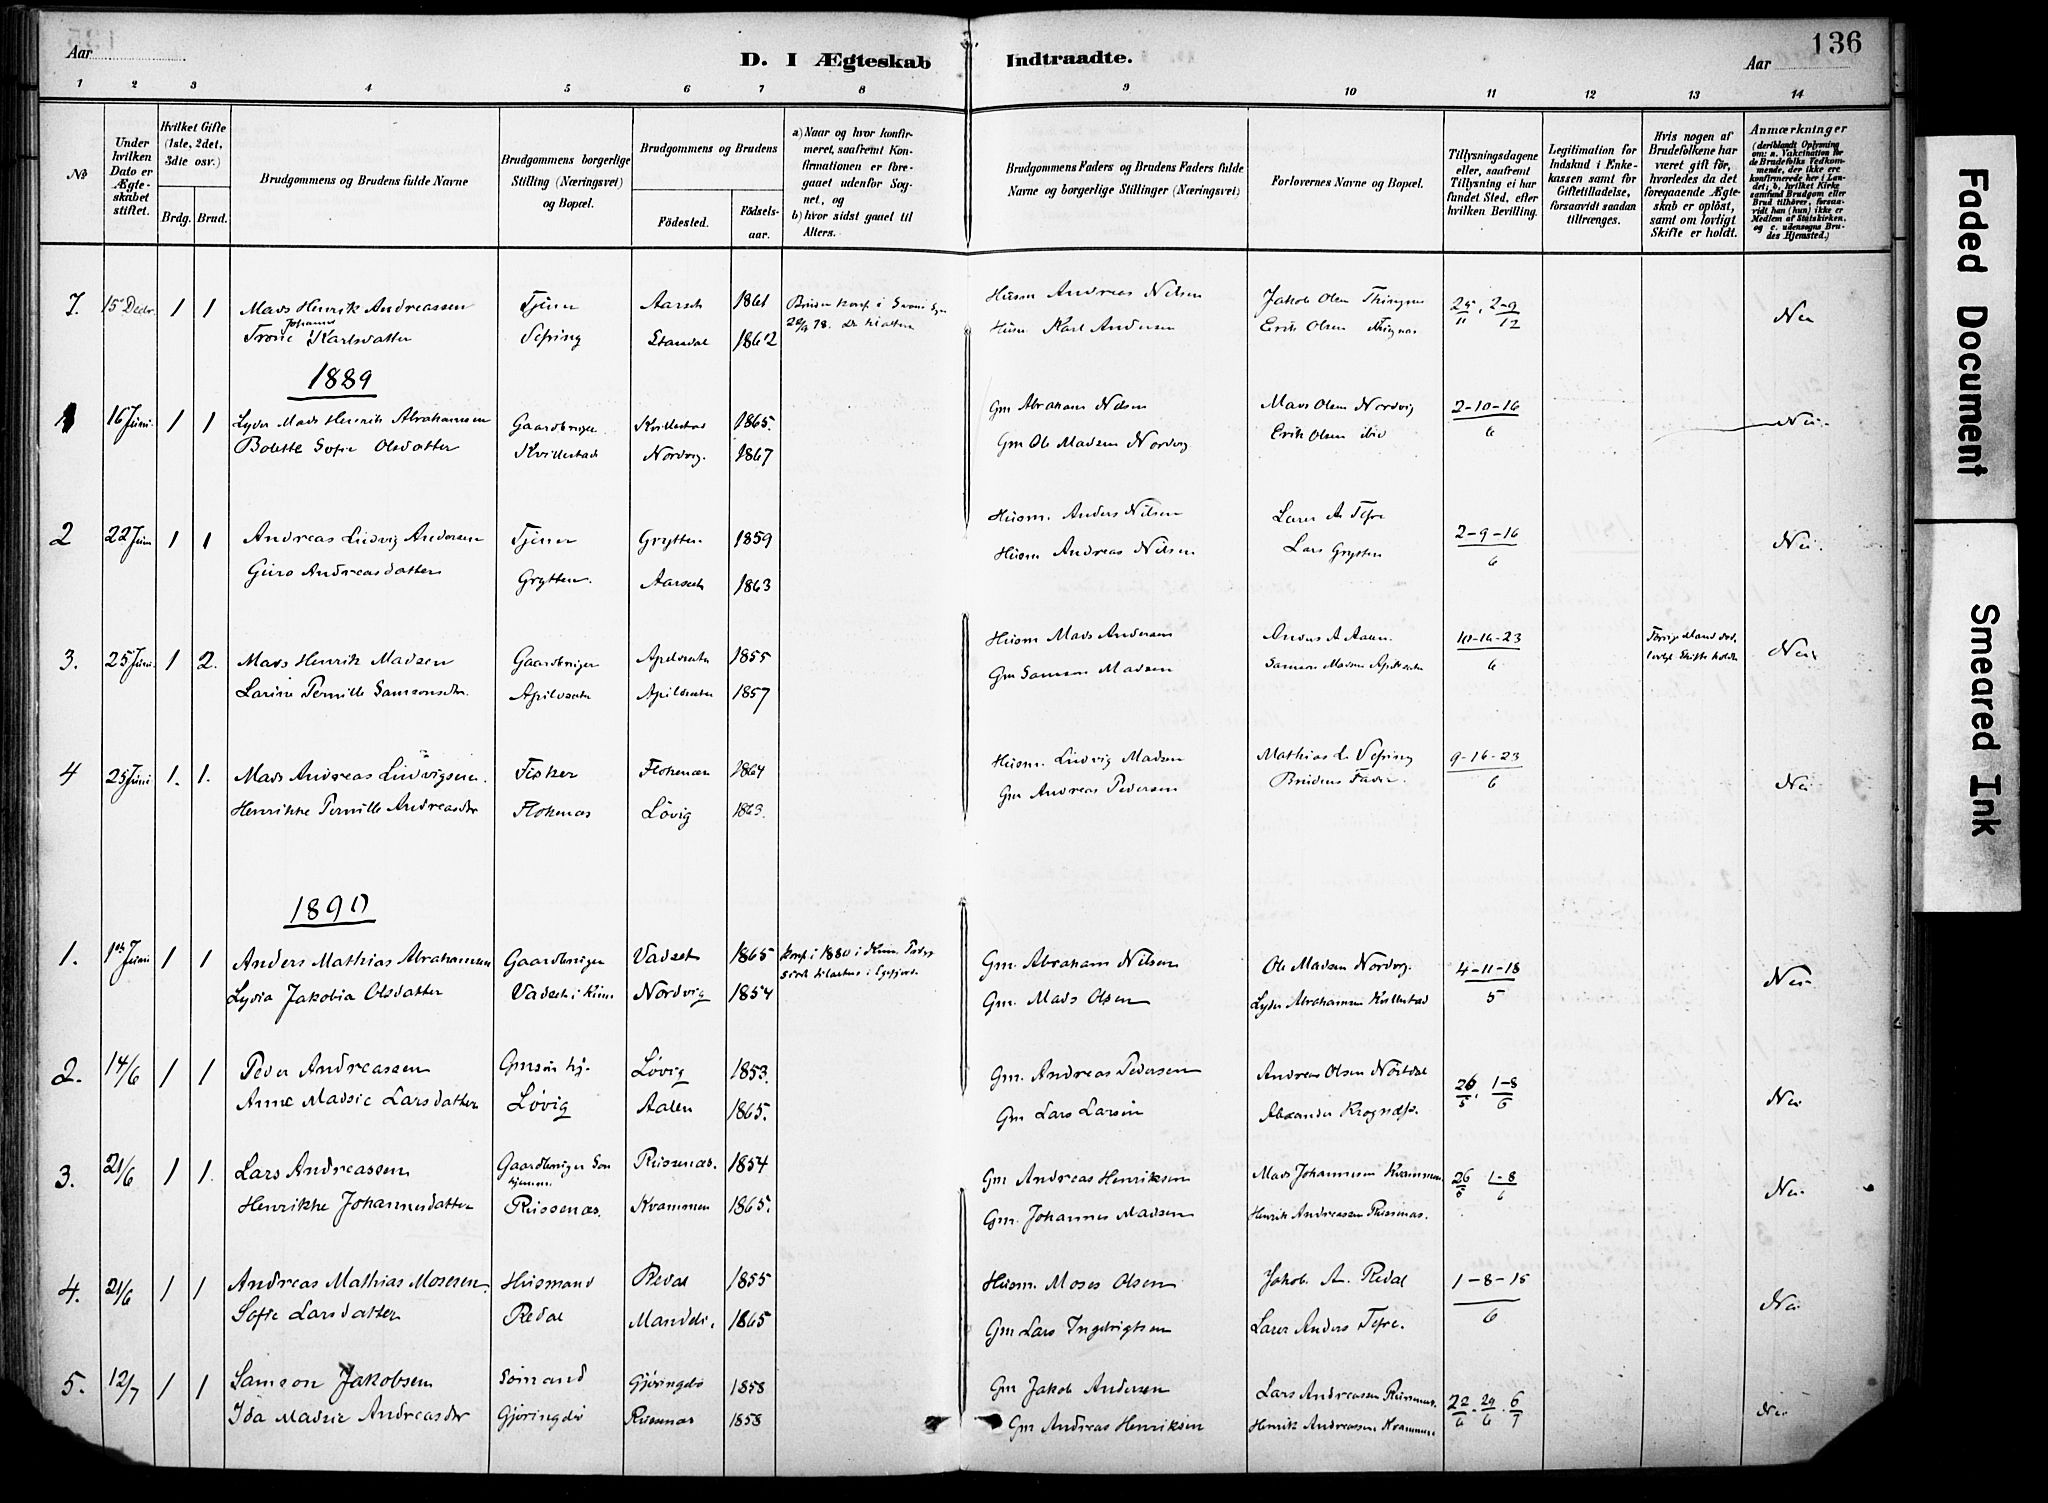 136
Aar
D. I Ægteskab Indtraadte.
Aar
1 2 3 4 5 6 7 8 9 10 11 12 13 14
No
Under hvilken Dato er Ægteskabet stiftet.
Hvilket Gifte (1ste, 2det, 3die osv.)
Brdg. Brud.
Brudgommens og Brudens fulde Navne
Brudgommens borgerlige Stilling (Næringsvei) og Bopæl.
Brudgommens og Brudens
Fødested. Fødselsaar.
a) Naar og hvor konfirmeret, saafremt Konfirmationen er foregaaet udenfor Sognet, og
b) hvor sidst gaaet til Alters.
Brudgommens Faders og Brudens Faders fulde Navne og borgerlige Stillinger (Næringsvei)
Forlovernes Navne og Bopæl.
Tillysningsdagene eller, saafremt Tillysning ei har fundet Sted, efter hvilken Bevilling.
Legitimation for Indskud i Enkekassen samt for Giftetilladelse, forsaavidt saadan tiltrænges.
Hvis nogen af Brudefolkene har været gift før, hvorledes da det foregaaende Ægteskab er opløst, samt om lovligt Skifte er holdt.
Anmærkninger (deriblandt Oplysning om: a. Vakcination for de Brudefolks Vedkommende, der ikke ere konfirmerede her i Landet; b. hvilket Kirkesamfund Brudgom eller Brud tilhører, forsaavidt han (hun) ikke er Medlem af Statskirken, og c. udensogns Brudes Hjemsted.)
7. 15 Decbr. 1 1 Mads Henrik Andreassen Tjener Aarset 1861 Husm Andreas Nilsen Jakob Olsen 25/11 . 2-9/12 Nei
Johanne Karlsdatter 1862 Husm Karl Andersen Erik Olsen
1889
1 16 Juni 1 1 Lyder Mads Henrik Abrahamsen Gaardbruger 1865 Gm Abraham Nilsen Mads Olsen Nordvig 2-10-16/6 Nei.
Bolette Sofie Olsdatter Kvillestad Nordvig. 1867 Gm Ole Madsen Nordvig Erik Olsen ibid
2 22 Juni 1 1 Andreas Ludvig Andersen Tjener Grytten 1859 Husm. Anders Nilsen 2-9-16/6 Nei.
Guro Andreasdatter Grytten. Aarseth 1863 Husm Andreas Nilsen Lars Grytten
3. 25 Juni. 1 2. Mads Henrik Madsen Gaardbruger Apelsæter 1855 Husm Mads Andersen 10-16-23/6 Nei
Larine Pernille Samsonsdtr. Apelsæter Apelsæter 1857 Gm Samson Madsen Samson Madsen Apelsæter
4 25 Juni 1. 1. Mads Andreas Ludvigsen. Fisker Flokenæs 1864 Husm. Ludvig Madsen Mathias L. 9-16-23/6 Nei
Henrikke Pernille Andreasdtr Flokenæs Løvig 1863. Gm Andreas Pedersen Brudens Fader.
1890
1. 1ste Juni 1 1 Anders Mathias Abrahamsen Gaardbruger Vadset 1865 Konf i 1880 i Kinn Gm. Abraham Nilsen Ole Madsen Nordvig. 4-11-18/5 Nei
Lydia Jakobia Olsdatter Vadset i Kinn Nordvig 1854 Gm. Mads Olsen Lyder Abrahamsen Kvillestad
2. 14/6 1 1 Peder Andreassen Løvig 1853. Gm. Andreas Pedersen Andreas Olsen 26/5 . 1-8/6 Nei
Anne Madsie Larsdatter Løvig Aalen 1865. Gm Lars Larsen Alexander
3. 21/6 1 1. Lars Andreassen Gaardbruger Søn hjemme Risenæs. 1854 Gm Andreas Henriksen Mads Johannesen Kvammen 26/5 1-8/6 Nei
Henrikke Johannesdatter Risenæs. Kvammen 1865. Gm. Johannes Madsen Henrik Andreassen Risenæs.
4. 21/6 1 1 Andreas Mathias Mosesen. Husmand Redal 1855 Husm. Moses Olsen Jakob A. Redal 1-8-15/6 Nei
Sofie Larsdatter Redal 1865 Gm Lars Ingebrigtsen Anders
5. 12/7 1 1 Samson Jakobsen Sømand Gjøringbø 1858 Gm Jakob Andersen Lars Andreassen Risenæs. 22/6 . 29/6 . 6/7 Nei
Ida Madsie Andreasdtr Gjøringbø Risenæs 1858 Gm Andreas Henriksen Henrik Andreassen Kvammen
Faded Document
Smeared Ink